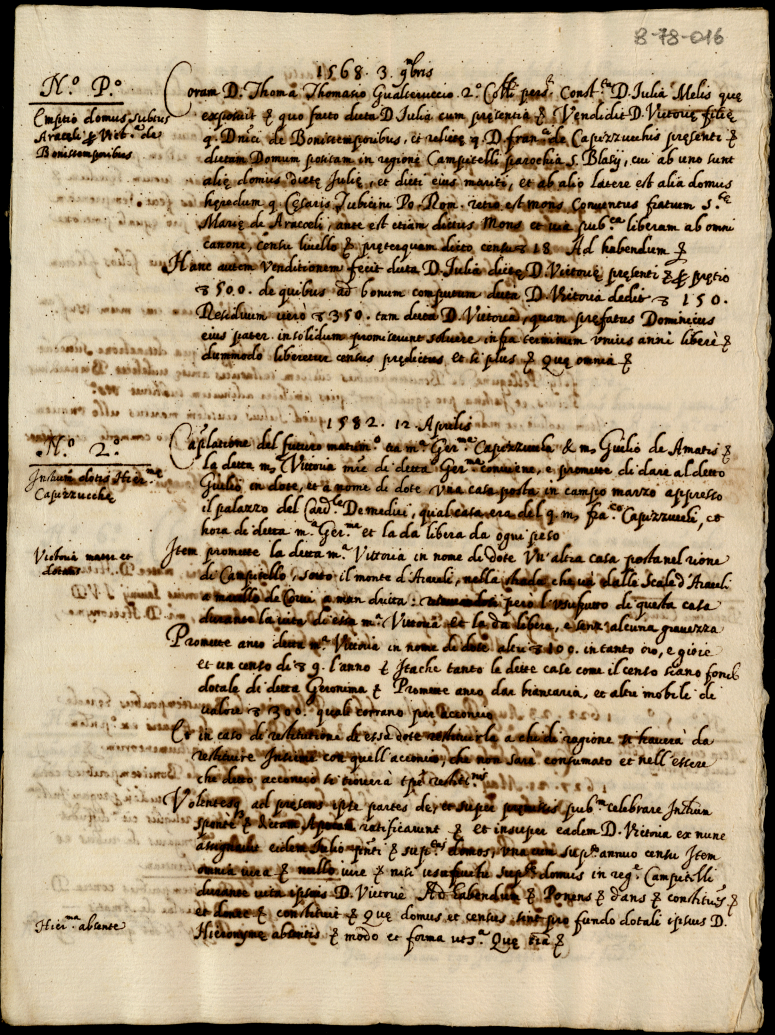 8-78-016
1568. 3. 9bris
N.º P.º
Emptio domus subtus
Araceli p Vict.ª de
Bonistemporibus
Coram D. Thoma Thomasio Gualteruccio 2.º Coll. pers. Const. D. Iulia Melis quę
exposuit & quo facto dicta D. Iulia cum presentia & Vendidit D. Victorię filię
q. Dnici de Bonistemporibus, et relictę q. D. Fran. de Capizzucchis presenti &
dictam Domum positam in regione Campitelli parochia S. Blasij, cui ab uno sunt
alię domus dictę Iulię, et dicti eius mariti, et ab alio latere est alia domus
hęredum q. Cesaris Po. Rom. retro est mons Conventus fratrum S.tę
Marię de Araceli, ante est etiam dictus Mons et via pub.ca liberam ab omni
canone, censu livello & pręterquam dicto censu 18 Ad habendum &
Hanc autem Venditionem fecit dicta D. Iulia dictę D. Victorię presenti & p pretio
500. de quibus ad bonum computum dicta D. Victoria dedit 150.
Residuum vero 350. tam dicta D. Victoria, quam pręfatus Dominicus
eius pater insolidum promiserunt solvere infra terminum unius anni liberè &
dummodo liberetur census prędictus et si plus & Quę omnia &
1582. 12. Aprilis
N.º 2.º
Instrum dotis Hier.mę
Capizucchę
Capitulatione del futuro matrim.º tra m.ª Ger.ma Capizzucha & m. Giulio de Amatis &
la detta m. Vittoria mre di detta Ger.ma conviene, e promette di dare al detto
Giulio in dote, et à nome di dote una casa posta in campo marzo appresso
il palazzo del Card.le De medici, qual casa era del q. m. fra.co Capizucchi, et
hora di detta m.ª Ger.ma et la da libera da ogni peso
Victoria mater et
Item promette la detta m.ª Vittoria in nome di dote un' altra casa posta nel rione
di Campitello, sotto il monte d'Araceli, nella strada che và dalle Scale d'Araceli
a man dritta: però l'usufrutto di questa casa
durante la vita di essa m.ª Vittoria et la da libera, e senz' alcuna gravezza
Promette anco detta m.ª Vittoria in nome di dote altri 100. in tanto oro, e gioie
et un censo di 9. l'anno & Itache tanto le dette case come il censo siano fondo
dotale di detta Geronima & Promette anco dar biancaria, et altri mobili di
valore 300. quali corrano per acconcio
Et in caso di restitutione di essa dote restituirla a chi di ragione si haverà da
restituire Insieme con quell'acconcio, che non sarà consumato et nell'essere
che detto acconcio si troverà restit.nis
Volentesq. ad presens ipse partes de, et super premissis pub.m celebrare Instrum
sponte & ratificarunt & et insuper eadem D. Victoria ex nunc
assignavit eidem Iulio pnti & sup.tas domos, una cum sup.to annuo censu Item
omnia iura & nullo iure & nisi usufructu sup.tę domus in reg.e Campitelli
durante vita ipsius D. Victorię Ad habendum & Ponens & dans & constituens &
et donec & constituit & Quę domus et census sint pro fundo dotali ipsius D.
Hier.ma absente
Hieronymę absentis & modo et forma ut s.ª Quę &